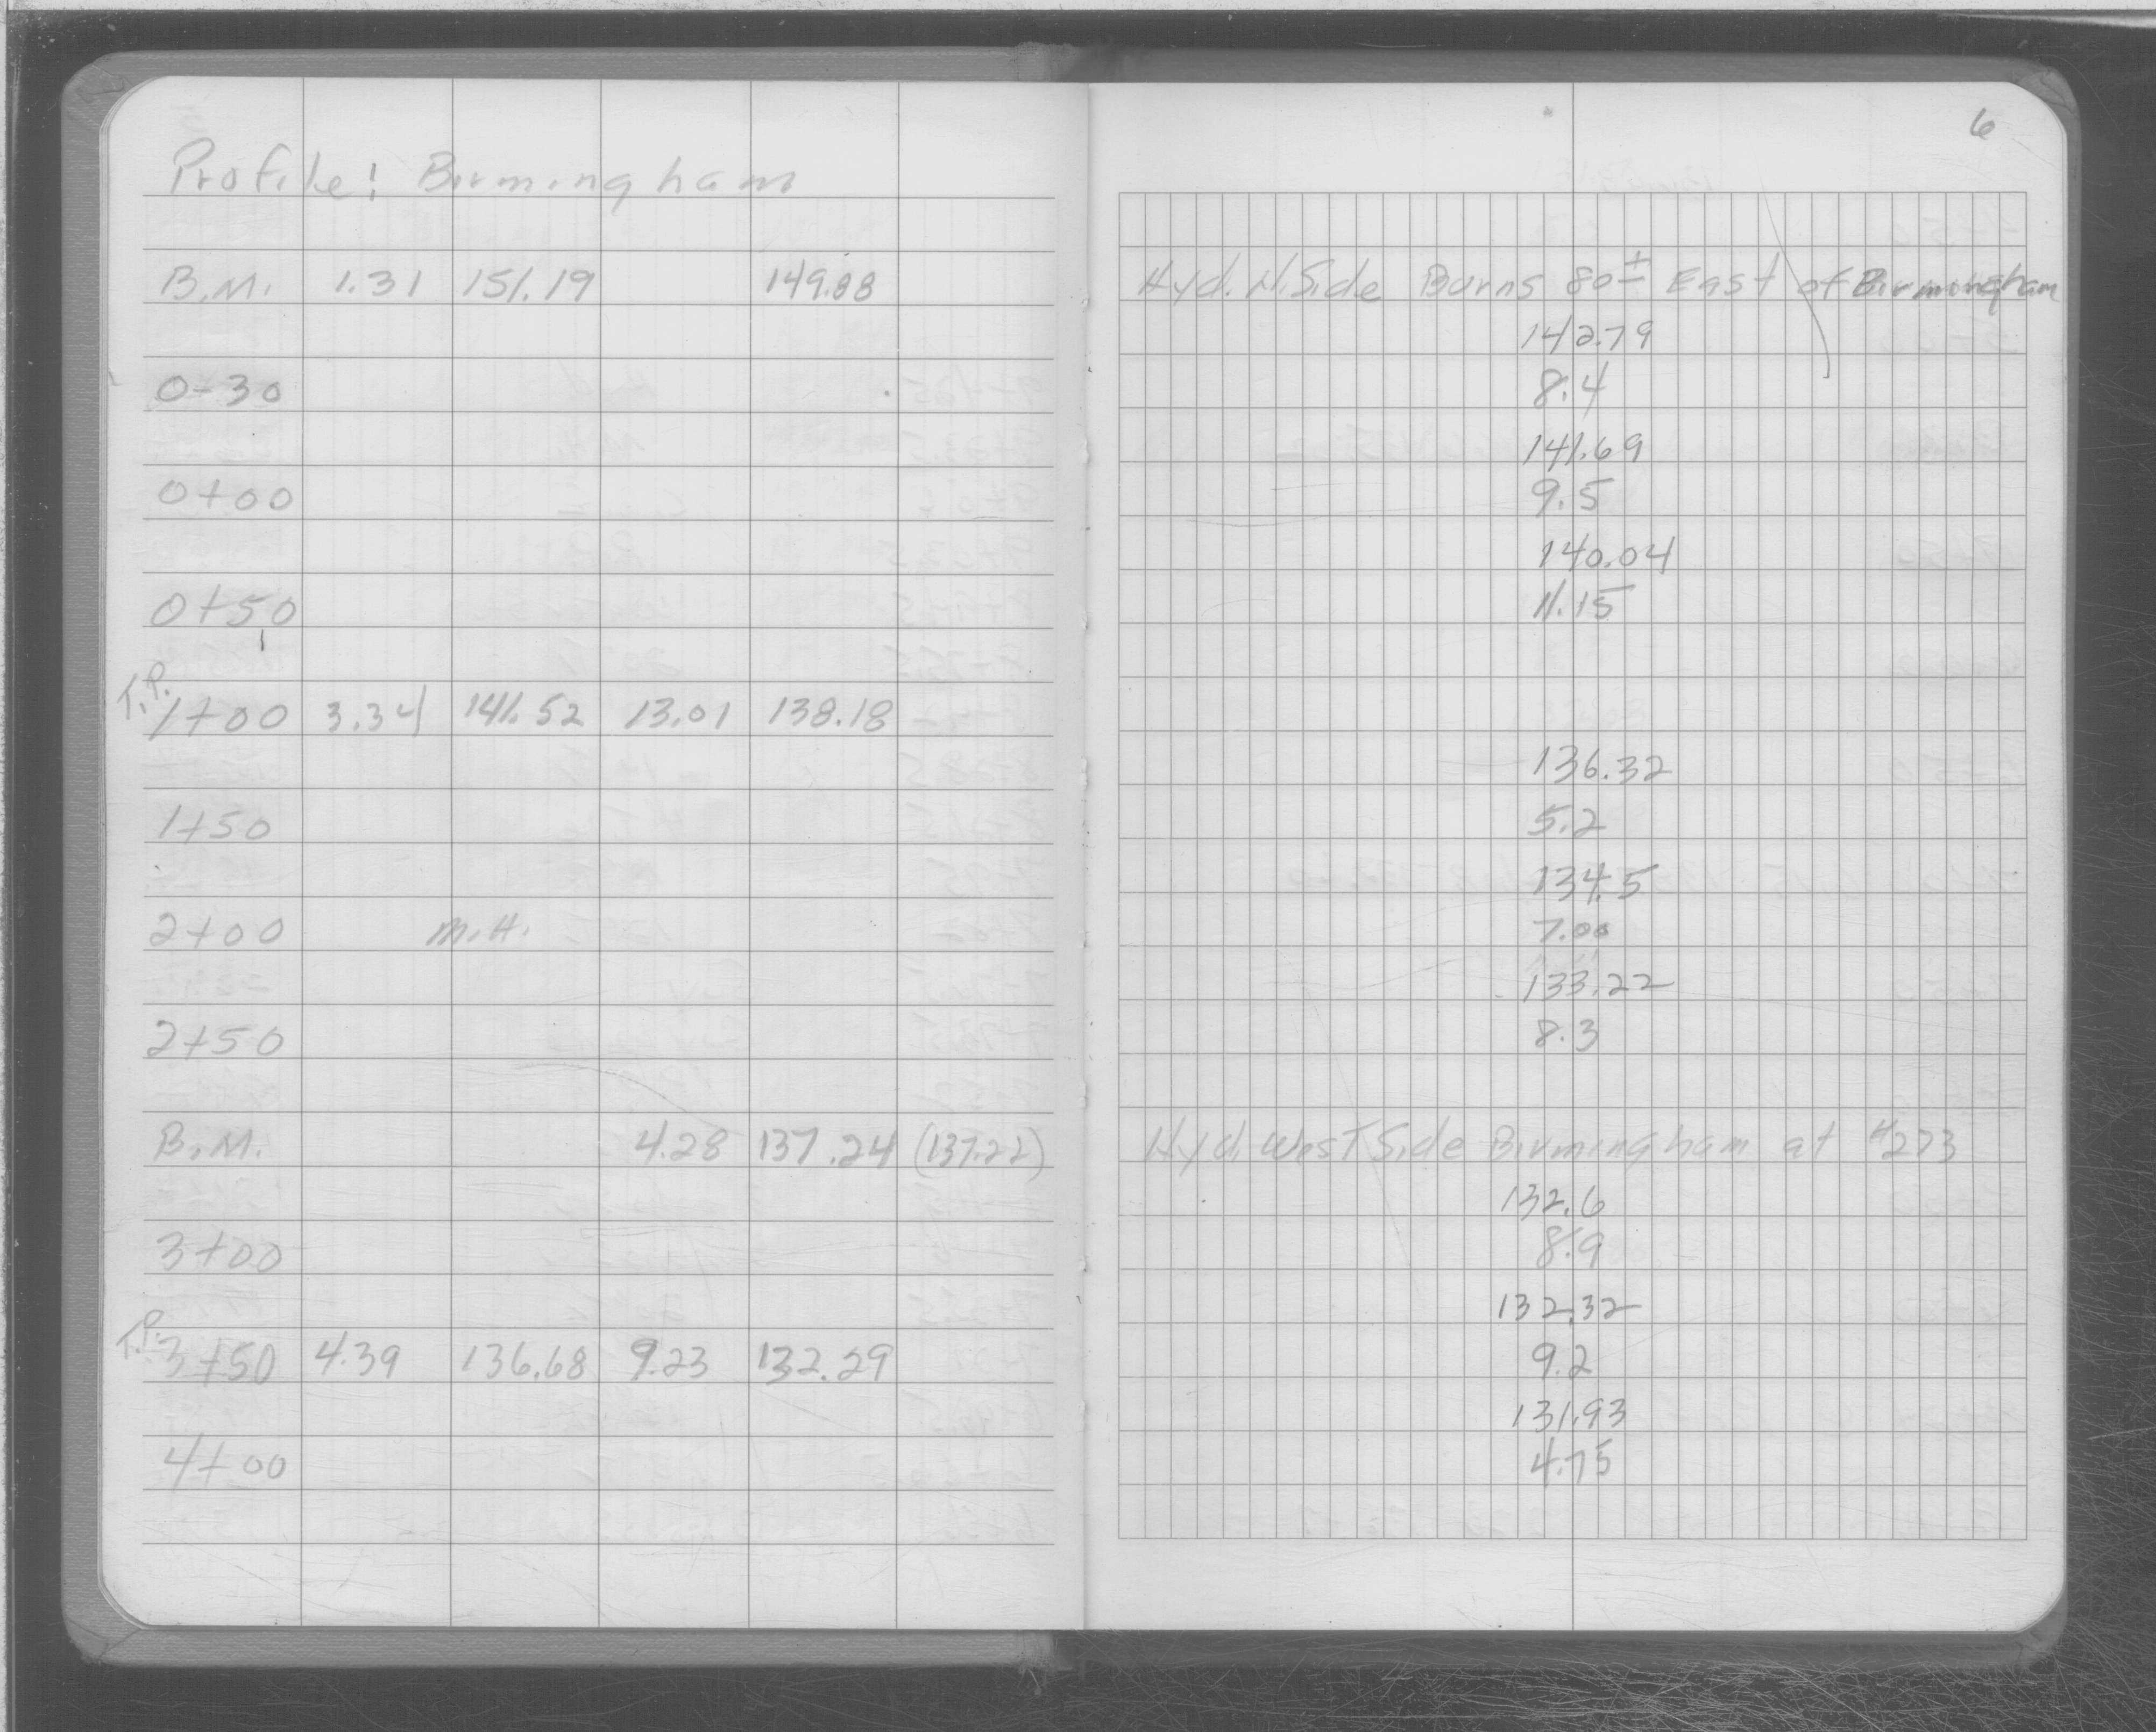 6
Profile: Birmingham
B.M. 1.31 151.19 149.88 Hyd. N. Side Burns 80± East of Birmingham
142.79
0-30 8.4
141.69
0+00 9.5
140.04
0+50 11.15
T.P.
1+00 3.34 141.52 13.01 138.18
136.32
1+50 5.2
134.5
2+00 M.H. 7.00
133.22
2+50 8.3
B.M. 4.28 137.24 (137.22) Hyd. West Side Birmingham at #273
132.6
3+00 8.9
132.32
T.P.
3+50 4.39 136.68 9.23 132.29 9.2
131.93
4+00 4.75